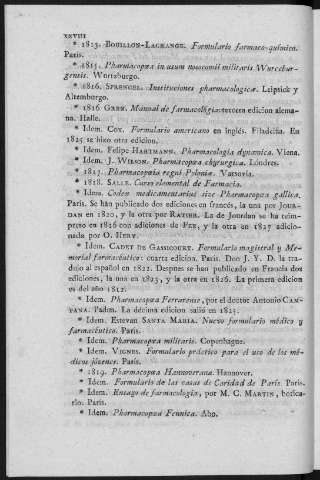 XXVIII
* 1813. BOUILLON-LAGRANGE. Formulario farmaco-químico.
Paris.
* 1815. Pharmacopœa in usum nosocomii militaris Wurceburgensis.
Wurtzburgo.
* 1816. SPRENGEL. Instituciones pharmacologicæ. Leipsick y
Altemburgo.
* 1816 GREN. Manual de farmacológia: tercera edicion alemana.
Halle.
* Idem. COX. Formulario americano en inglés. Filadelfia. En
1825 se hizo otra edicion.
* Idem. Felipe HARTMANN. Pharmacologia dynamica. Viena.
* Idem. J. WILSON. Pharmacopœa chyrurgica. Londres.
* 1817. Pharmacopœia regni Poloniæ. Varsovia.
* 1818. SALLE. Curso elemental de Farmacia.
* Idem. Codex medicamentarius sive Pharmacopœa gallica.
Paris. Se han publicado dos ediciones en francés, la una por JOURDAN
en 1820, y la otra por RATIER. La de Jourdan se ha reimpreso
en 1826 con adiciones de FEE, y la otra en 1827 adicionada
por O. HENRY.
* Idem. CADET DE GASSICOURT. Formulario magistral y Memorial
farmacéutico: cuarta edicion. Paris. Don J. Y. D. la tradujo
al español en 1822. Despues se han publicado en Francia dos
ediciones, la una en 1823, y la otra en 1826. La primera edicion
es del año 1812.
* Idem. Pharmacopœa Ferrarense, por el doctor Antonio CAMPANA.
Padua. La décima edicion salió en 1823.
* Idem. Estevan SANTA MARIA. Nuevo formulario médico y
farmacéutico. Paris.
* Idem. Pharmacopœa militaris. Copenhague.
* Idem. VIGNES. Formulario práctico para el uso de los médicos
jóvenes. Paris.
* 1819. Pharmacopœa Hannoverana. Hannover.
* Idem. Formulario de las casas de Caridad de Paris. Paris.
* Idem. Ensayo de farmacología, por M. C. MARTIN, boticario.
Paris.
* Idem. Pharmacopœa Fennica. Abo.